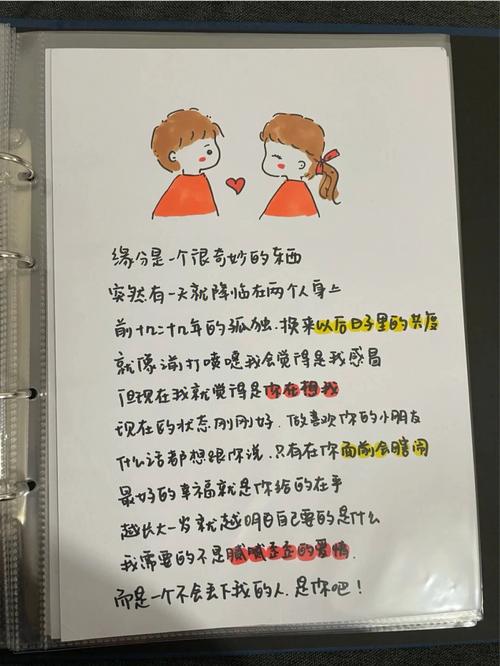 缘分是一个很奇妙的东西
突然有一天就降临在两个人身上
前十九二十九年的孤独.换来以后日子里的共度
就像以前打喷嚏我会觉得是我感冒
但现在我就觉得是你在想我
现在的状态刚刚好.做喜欢你的小朋友
什么话都想跟你说.只有在你面前会瞎闹
最好的幸福就是你给的在乎
越长大一岁就越明白自己要的是什么
我需要的不是腻腻歪歪的爱情.
而是一个不会丢下我的人.是你吧！